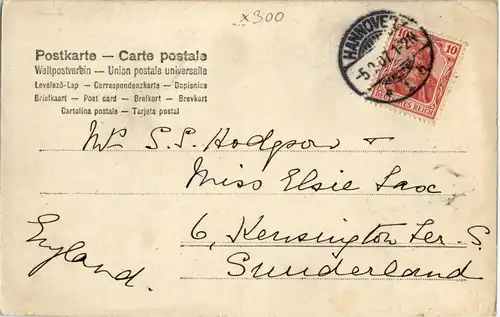 x300
Postkarte — Carte postale
Weltpostverbin — Union postale universelle
Levelező-Lap — Correspondenzkarte — Dopisnice
Briefkaart — Post card — Brefkort — Brevkort
Cartolina postale — Tarjeta postal
HANNOVER
10 10
DEUTSCHES REICH
Mr S. S. Hodgson &
Miss Elsie Sax
6, Kensington Ter. S.
Sunderland
England.